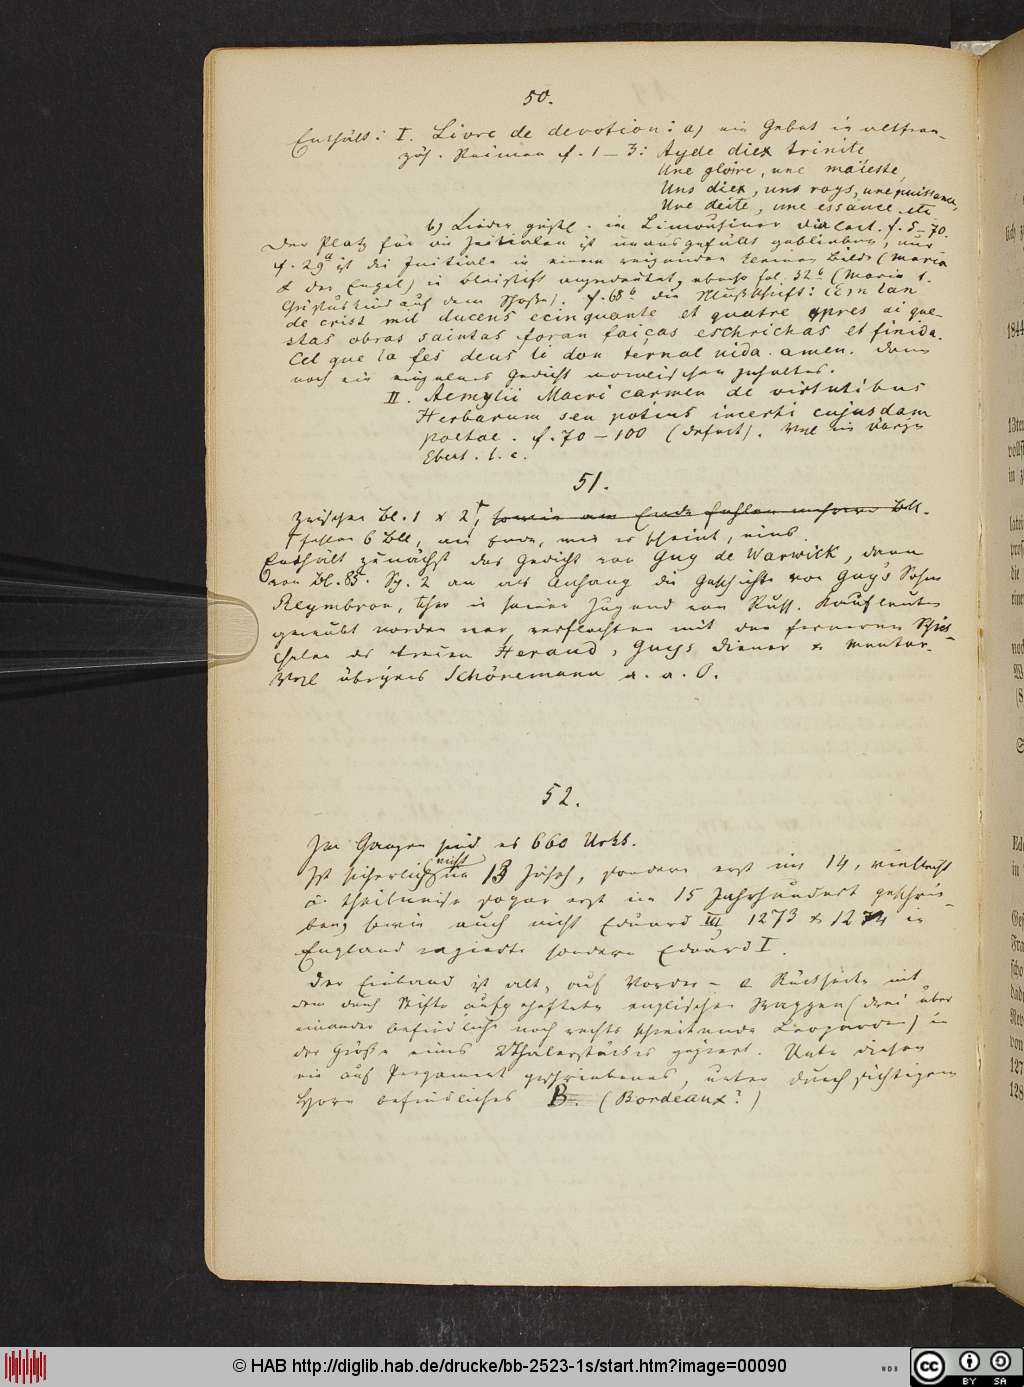 50.
Enthält: I. Livre de devotion: a) ein Gebet in altfran-
zös. Reimen f. 1–3: Ayde diex trinite
Une gloire, une maieste,
Uns diex, uns roys, une puissance,
Une deite, une essance etc
b) Lieder geistl. in Limousiner Dialect. f. 5–70.
Der Platz für die Initialen ist unausgefüllt geblieben, nur
f. 29a ist die Initiale in einem reizenden kleinen Bilde (Maria
& der Engel) in Bleistift angedeutet, ebenso fol. 32b (Maria d.
Christuskind auf dem Schoße). f. 68b die Schlußschrift: Cen lan
de crist mil ducens ecinquante et quatre apres ai que-
stas obras saintas foran faiças eschrichas et finida.
Cel que la fes deus li don ternal uida. amen. Dann
noch ein einzelnes Gedicht moralischen Inhaltes.
II. Aemylii Macri carmen de virtutibus
Herbarum seu potius incerti cujusdam
poetae. f. 70–100 (defect). Vgl
Ebert. l. c.
51.
Zwischen Bl. 1 & 2†, sowie am Ende fehlen mehrere Bll.
† fehlen 6 Bll, am Ende, wie es scheint, eins.
Enthält zunächst das Gedicht von Guy de Warwick, dann
von Bl. 85. Sp. 2 an als Anhang die Geschichte von Guy's Sohne
Reymbron, der in seiner Jugend von Russ. Kaufleuten
geraubt worden war verflochten mit den ferneren Schick-
salen des treuen Heraud, Guys Diener & Mentor.
Vgl übrigens Schönemann a. a. O.
52.
Im Ganzen sind es 660 Urks.
Ist sicherlich nicht im 13 Jahrh, sondern erst im 14, vielleicht
u. theilweise sogar erst im 15 Jahrhundert geschrie-
ben, sowie auch nicht Eduard III 1273 & 1274 in
England regierte sondern Edouard I.
Der Einband ist alt, auf Vorder- & Rückseite mit
den durch Stifte aufgehefteten englischen Wappen (drei über
einander befindliche nach rechts schreitende Leoparden) in
der Größe eines 2Thalerstückes geziert. Unter diesen
ein auf Pergament geschriebenes, unter durchsichtigem
Horn befindliches B. (Bordeaux?)
© HAB http://diglib.hab.de/drucke/bb-2523-1s/start.htm?image=00090
WDB
CC BY SA